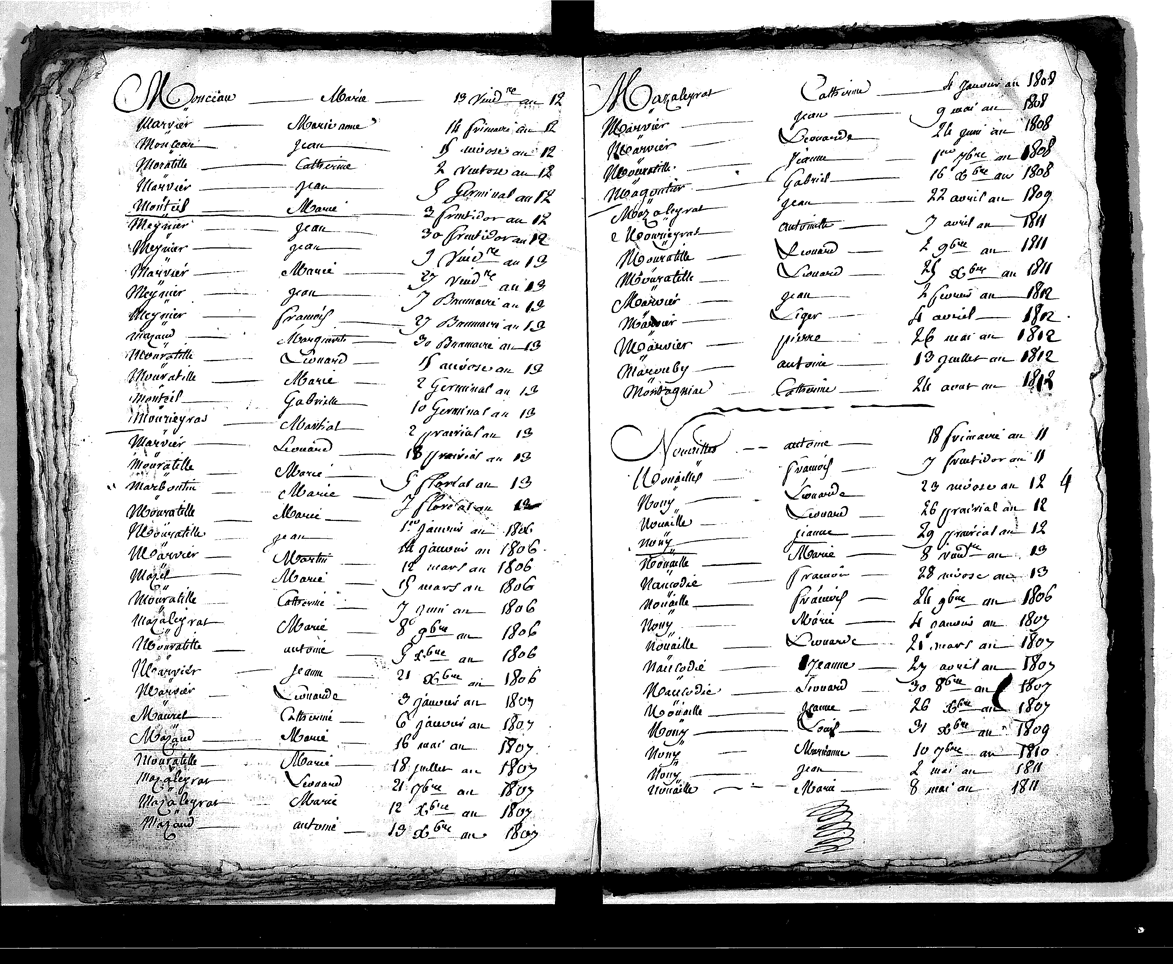 Monceau Marie 13 Vend.re an 12
Marvier Marie anne 14 frimaire an 12
Monceau Jean 15 nivose an 12
Moratille Catherine 2 ventose an 12
Marvier Jean 5 Germinal an 12
Monteil Marie 3 fructidor an 12
Meynier Jean 30 fructidor an 12
Meynier Jean 9 Vend.re an 13
Marvier Marie 27 Vend.re an 13
Meynier Jean 7 Brumaire an 13
Meynier françois 27 Brumaire an 13
Mazaud Marguerite 30 Brumaire an 13
Mouratille Léonard 15 nivose an 13
Mouratille Marie 2 Germinal an 13
Monteil Gabrielle 10 Germinal an 13
Mourieyras Martial 2 prairial an 13
Marvier Léonard 18 prairial an 13
Mouratille Marie 5 floréal an 13
Marbontin Marie 7 floréal an 13
Mouratille Marie 1er janvier an 1806
Mouratille Jean 14 janvier an 1806
Marvier Martin 12 mars an 1806
Mazet Marie 15 mars an 1806
Mouratille Catherine 7 juin an 1806
Mazaleyrat Marie 8 9bre an 1806
Mouratille antoine 5 Xbre an 1806
Marvier Jeanne 21 Xbre an 1806
Marvier Léonarde 3 janvier an 1807
Mauret Catherine 6 janvier an 1807
Mazaud Marie 16 mai an 1807
Mouratille Marie 18 juillet an 1807
Mazaleyrat Léonard 21 7bre an 1807
Mazaleyrat Marie 12 Xbre an 1807
Mazaud antoine 13 Xbre an 1807
Mazaleyrat Catherine 4 janvier an 1808
Marvier Jean 9 mai an 1808
Marvier Léonarde 24 juin an 1808
Mouratille Jeanne 1er 7bre an 1808
Magontier Gabriel 16 Xbre an 1808
Mazaleyrat Jean 22 avril an 1809
Mourieyras antoinette 7 avril an 1811
Mouratille Léonard 2 9bre an 1811
Mouratille Léonard 25 Xbre an 1811
Marvier Jean 2 février an 1812
Marvier Léger 4 avril an 1812
Marvier pierre 26 mai an 1812
Marouby antoine 13 juillet an 1812
Montagniac Catherine 24 aout an 1812
Nouailles antoine 18 frimaire an 11
Nouailles françois 7 fructidor an 11
Nony Léonarde 23 nivose an 12 4
Nouaille Léonard 26 prairial an 12
Nony Jeanne 29 prairial an 12
Nouaille Marie 8 vend.re an 13
Naucodie françois 28 nivose an 13
Nouaille françois 24 9bre an 1806
Nony Marie 4 janvier an 1807
Nouaille Léonarde 21 mars an 1807
Naucodie Jeanne 27 avril an 1807
Naucodie Léonard 30 8bre an 1807
Nouaille Jeanne 26 Xbre an 1807
Nony Louis 31 Xbre an 1809
Nony Marianne 10 7bre an 1810
Nony Jean 2 mai an 1811
Nouaille Marie 8 mai an 1811